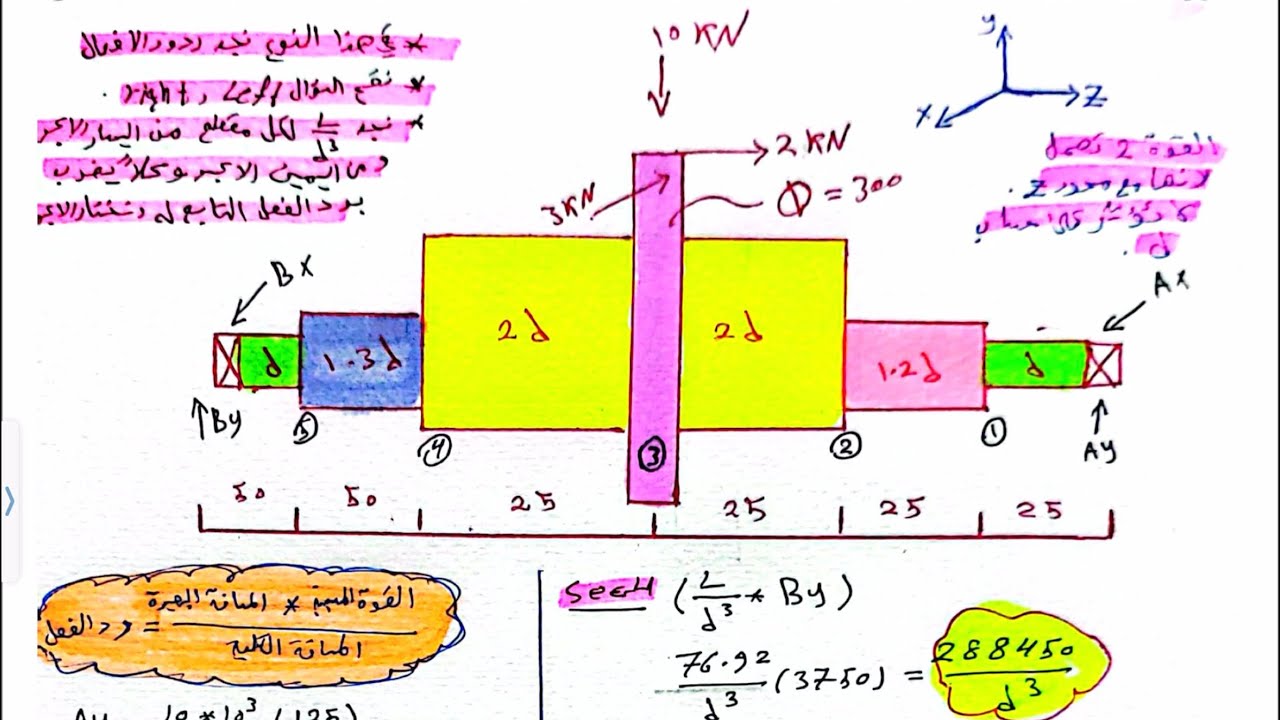 * في هذا النوع نجد ردود الافعال
* نقسم السؤال Left و right.
* نجد L/d³ لكل مقطع من اليسار الاكبر
ومن اليمين الاكبر وكلاً يضرب
برد الفعل التابع له ونختار الاكبر
10 KN
2 KN
3KN
Φ = 300
y
Z
X
القوة 2 تعمل
لانها مع محور Z.
لا تؤثر في حساب
d.
Bx
Ax
d
1.3d
2d
2d
1.2d
d
By
5
4
3
2
1
Ay
50
50
25
25
25
25
رد الفعل = القوة * المسافة
المسافة الكلية
Sec4 (L/d³ * By)
76.92/d³ (3750) = 288450/d³
Ay = 10*10³(125)